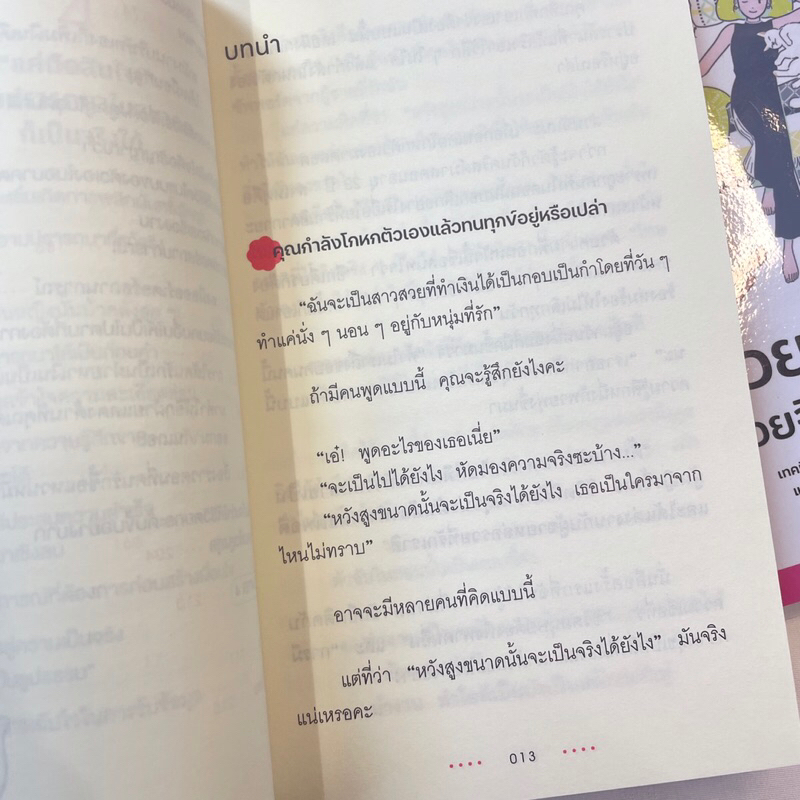 บทนำ
คุณกำลังโกหกตัวเองแล้วทนทุกข์อยู่หรือเปล่า
“ฉันจะเป็นสาวสวยที่ทำเงินได้เป็นกอบเป็นกำโดยที่วัน ๆ
ทำแค่นั่ง ๆ นอน ๆ อยู่กับหนุ่มที่รัก”
ถ้ามีคนพูดแบบนี้ คุณจะรู้สึกยังไงคะ
“เอ๋! พูดอะไรของเธอเนี่ย”
“จะเป็นไปได้ยังไง หัดมองความจริงซะบ้าง...”
“หวังสูงขนาดนั้นจะเป็นจริงได้ยังไง เธอเป็นใครมาจาก
ไหนไม่ทราบ”
อาจจะมีหลายคนที่คิดแบบนี้
แต่ที่ว่า “หวังสูงขนาดนั้นจะเป็นจริงได้ยังไง” มันจริง
แน่เหรอคะ
013